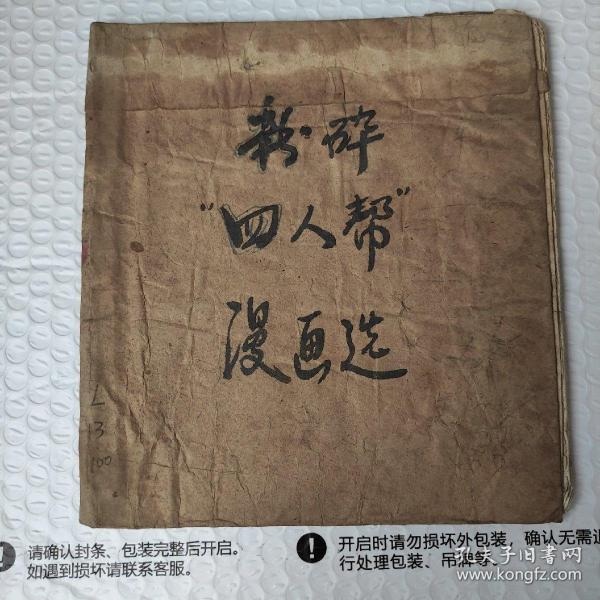 粉碎
"四人帮"
漫画选
L
13
100
请确认封条、包装完整后开启。
如遇到损坏请联系客服。
开启时请勿损坏外包装，确认无需退
行处理包装、吊牌等。
孔夫子旧书网
www.kongfz.com